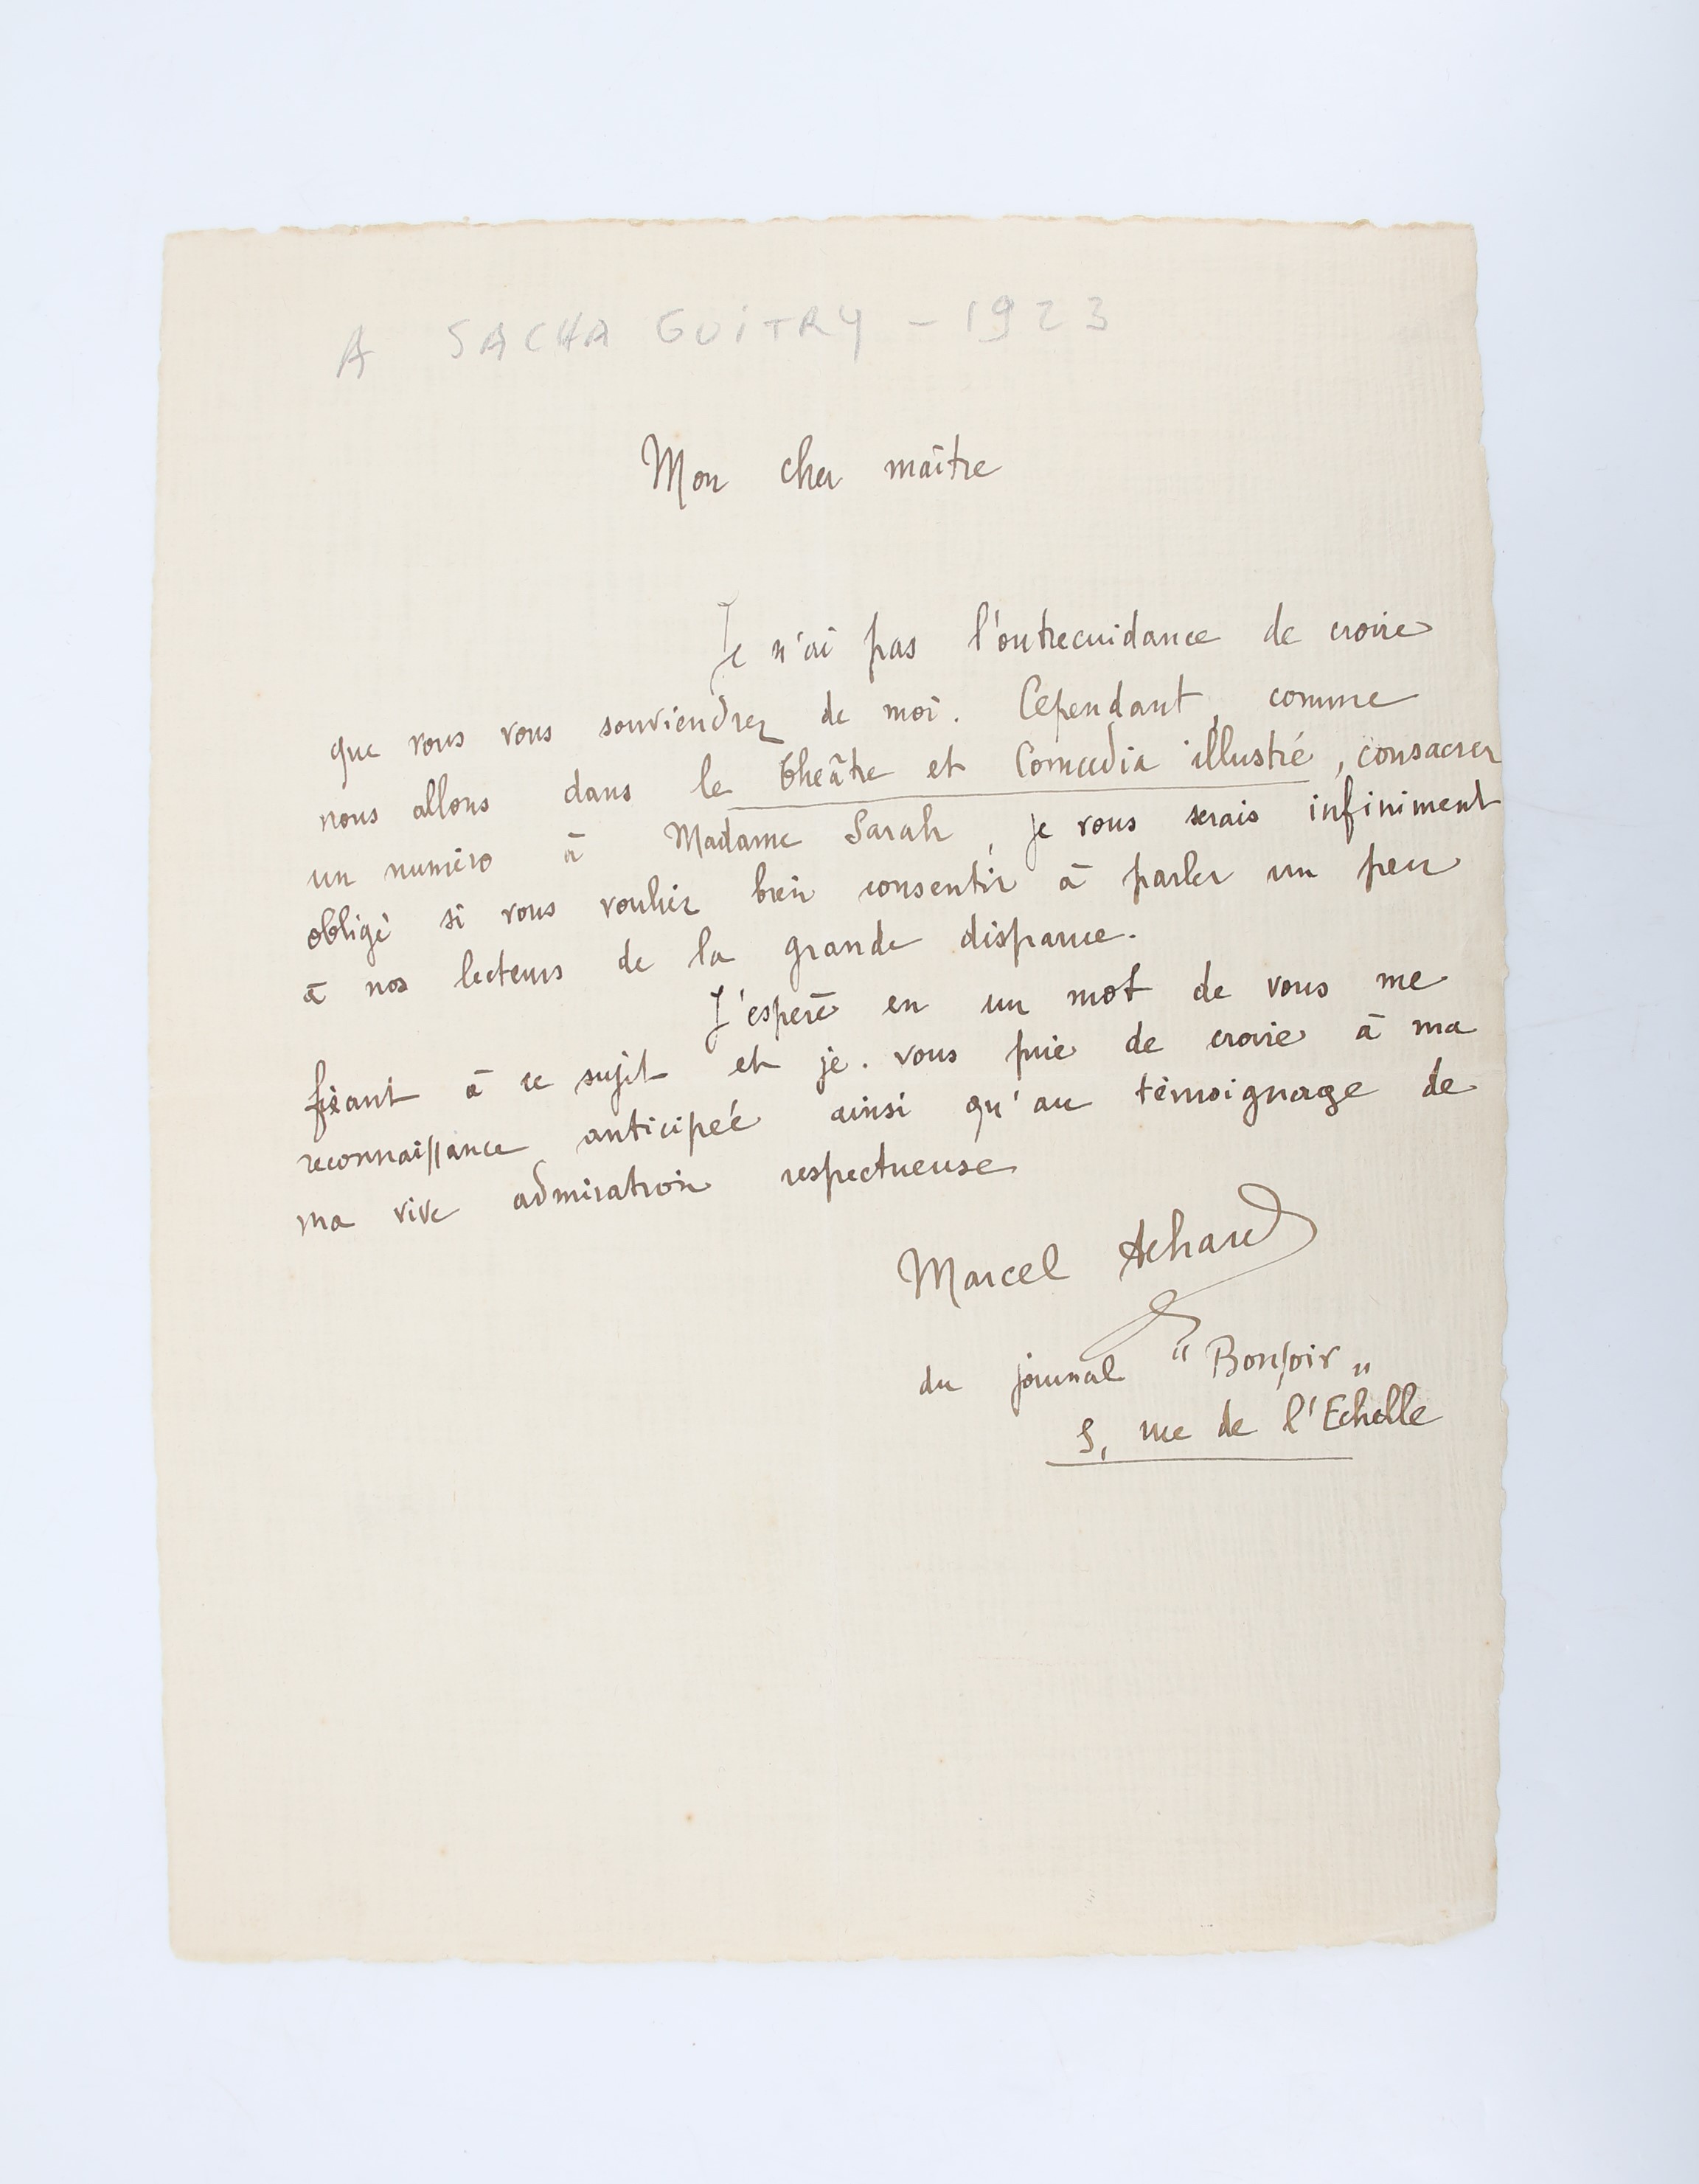 A SACHA GUITRY - 1923
Mon cher maître
Je n'ai pas l'outrecuidance de croire
que vous vous souviendrez de moi. Cependant, comme
nous allons dans le théâtre et Comœdia illustré, consacrer
un numéro à Madame Sarah, je vous serais infiniment
obligé si vous vouliez bien consentir à parler un peu
à nos lecteurs de la grande disparue.
J'espère en un mot de vous me
fixant à ce sujet et je vous prie de croire à ma
reconnaissance anticipée ainsi qu'au témoignage de
ma vive admiration respectueuse
Marcel Achard
du journal "Bonsoir"
5, rue de l'Echelle